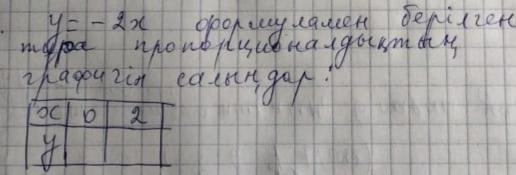 y = - 2x формуламен берілген
тура пропорционалдықтың
графигін салыңдар:
x 0 2
y